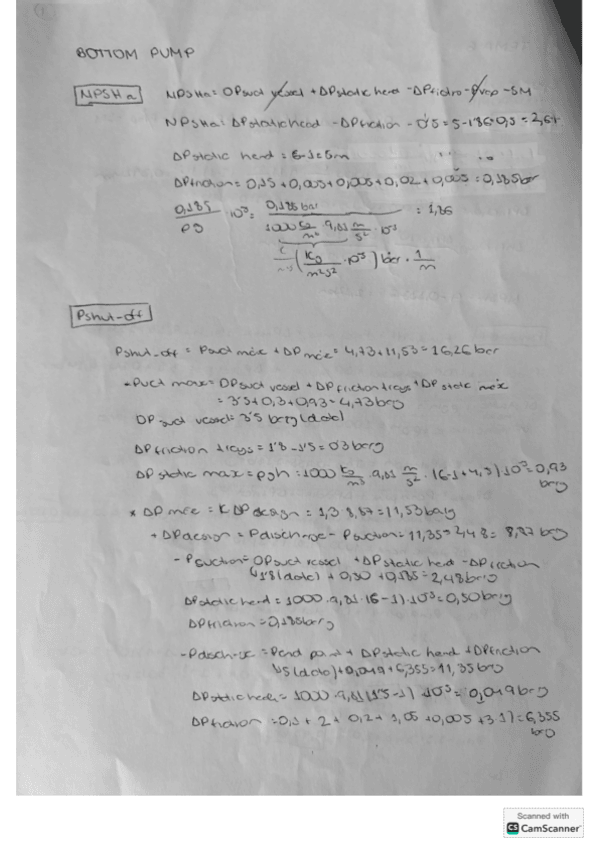 BOTTOM PUMP
NPSHa
NPSHa = DPsuct vessel + DPstatic head - DPfrictio - Pvap - SM
NPSHa = DPstatic head - DPfriction - 0'5 = 5 - 1'86 - 0,5 = 2,64
DPstatic head = 6-1=5m
DPfriction = 0,15 + 0,005 + 0,005 + 0,02 + 0,005 = 0,185 bar
0,185 / ρg · 10⁵ = 0,185 bar / 1000 kg/m³ · 9,81 m/s² · 10⁵ = 1,86
(kg/m²s² · 10⁵) bar · 1/m
Pshut-off
Pshut-off = Psuct máx + DP máx = 4,73 + 11,53 = 16,26 bar
- Psuct max = DPsuct vessel + DPfriction trays + DP static máx
= 3'5 + 0,3 + 0,93 = 4,73 barg
DP suct vessel = 3'5 barg (dato)
DPfriction trays = 1'8 - 1'5 = 0'3 barg
DP static max = ρgh = 1000 kg/m³ · 9,81 m/s² · (6-1+4,5) 10⁵ = 0,93 barg
* DP máx = K DPdesign = 1,3 · 8,87 = 11,53 barg
+ DPdesign = Pdischarge - Psuction = 11,35 - 2,48 = 8,87 barg
- Psuction = DPsuct vessel + DPstatic head - DPfriction
↳ 1'8 (dato) + 0,50 + 0,185 = 2,48 barg
DPstatic head = 1000 · 9,81 · (6-1) · 10⁵ = 0,50 barg
DPfriction = 0,185 barg
- Pdischarge = Pend point + DPstatic head + DPfriction
↳ 5 (dato) + 0,049 + 6,355 = 11,35 barg
DPstatic head = 1000 · 9,81 (1'5 - 1) 10⁵ = 0,049 barg
DPfriction = 0,1 + 2 + 0,2 + 1,05 + 0,005 + 3 = 6,355 barg
Scanned with
CS CamScanner